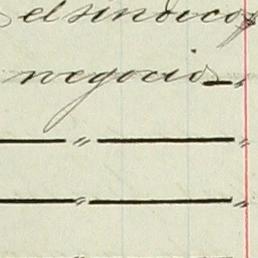 el síndico
negocio